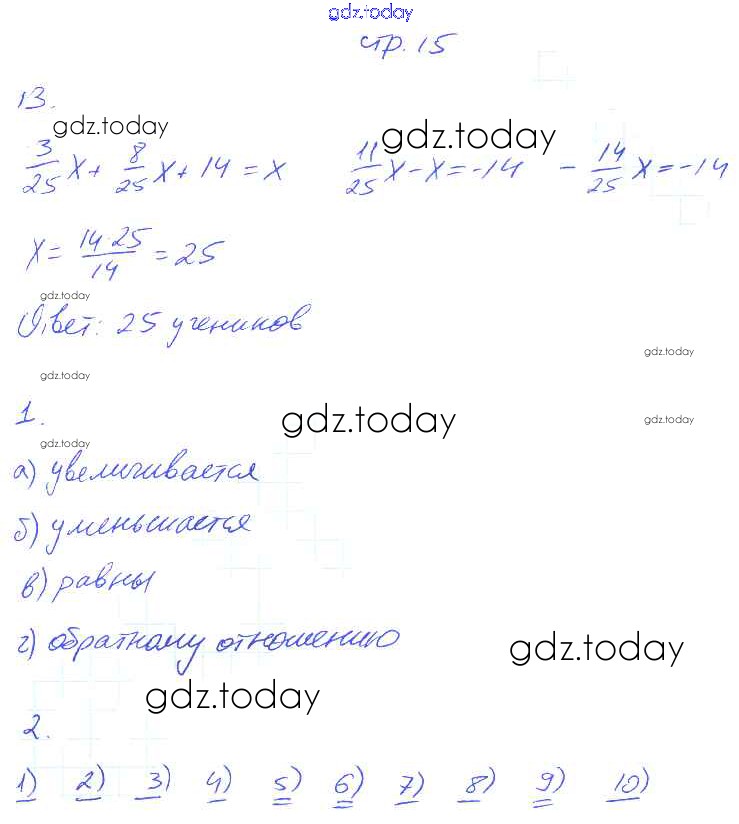 gdz.today
стр. 15
13.
gdz.today gdz.today
3/25 x + 8/25 x + 14 = x 11/25 x - x = -14 - 14/25 x = -14
x = 14·25/14 = 25
gdz.today
Ответ: 25 учеников
gdz.today
gdz.today
1. gdz.today gdz.today
gdz.today
а) увеличивается
б) уменьшается
в) равны
г) обратному отношению
gdz.today
gdz.today
2.
1) 2) 3) 4) 5) 6) 7) 8) 9) 10)